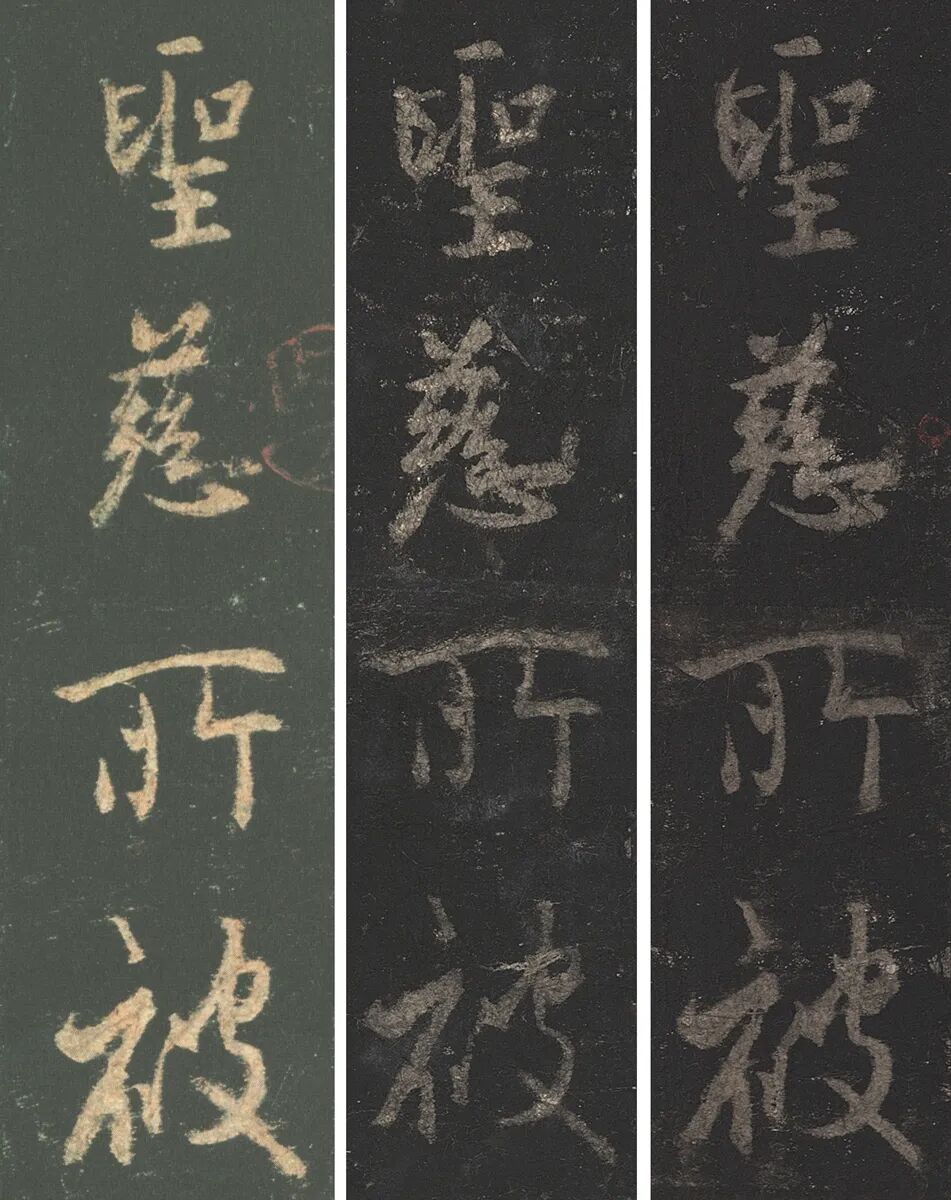 聖慈所被
聖慈所被
聖慈所被